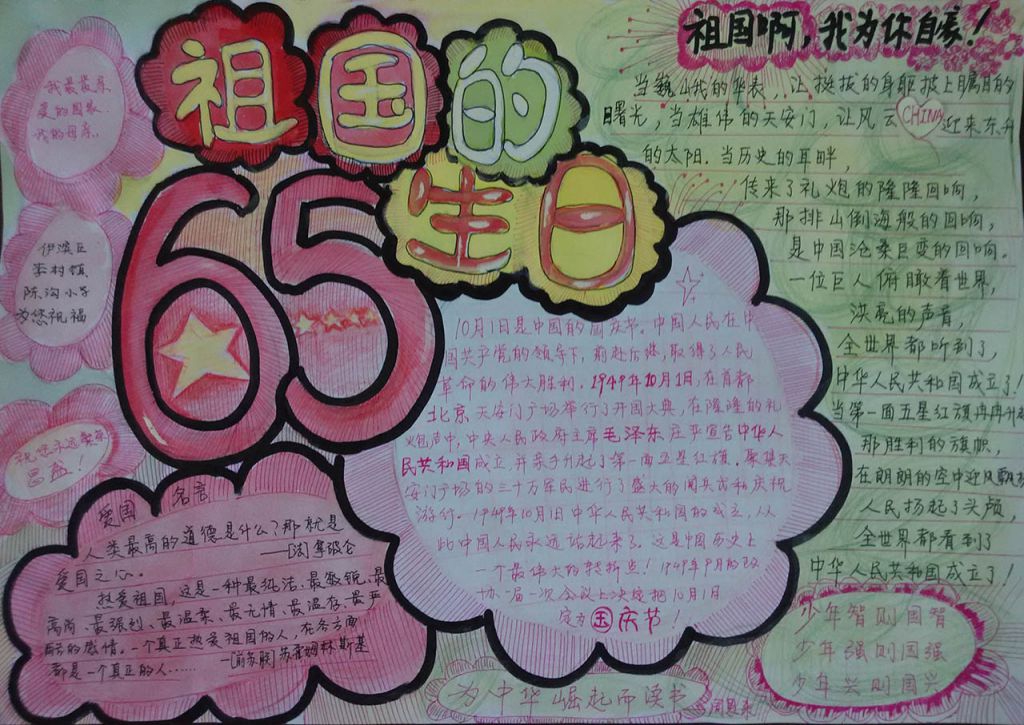 祖国的
65
生日
祖国啊,我为你自豪!
当巍巍的华表,让挺拔的身躯披上曙目的
曙光,当雄伟的天安门,让风云CHINA迎来东升
的太阳.当历史的耳畔,
传来了礼炮的隆隆回响,
那排山倒海般的回响,
是中国沧桑巨变的回响.
一位巨人俯瞰着世界,
洪亮的声音,
全世界都听到了,
中华人民共和国成立了!
当第一面五星红旗冉冉升
那胜利的旗帜,
在朗朗的空中迎风飘扬
人民扬起了头颅,
全世界都看到了
中华人民共和国成立了!
少年智则国智
少年强则国强
少年兴则国兴
我最
爱的国家
我的母亲.
伊滨区
李村镇
陈沟小学
为您祝福
祝您永远繁荣
昌盛!
10月1日是中国的国庆节。中国人民在中
国共产党的领导下,前赴后继,取得了人民
革命的伟大胜利.1949年10月1日,在首都
北京天安门广场举行了开国大典,在隆隆的礼
炮声中,中央人民政府主席毛泽东庄严宣告中华人
民共和国成立,并亲手升起了第一面五星红旗。聚集天
安门广场的三十万军民进行了盛大的阅兵式和庆祝
游行。1949年10月1日中华人民共和国的成立,从
此中国人民永远站起来了。这是中国历史上
一个最伟大的转折点!1949年9月的政
协一届一次会议上决定把10月1日
定为国庆节!
爱国名言
人类最高的道德是什么?那就是
爱国之心。 —[法]拿破仑
热爱祖国,这是一种最纯洁、最敏锐、最
高尚、最强烈、最温柔、最无情、最温存、最严
酷的感情。一个真正热爱祖国的人,在各方面
都是一个真正的人…… —[前苏联]苏霍姆林斯基
为中华崛起而读书
周恩来